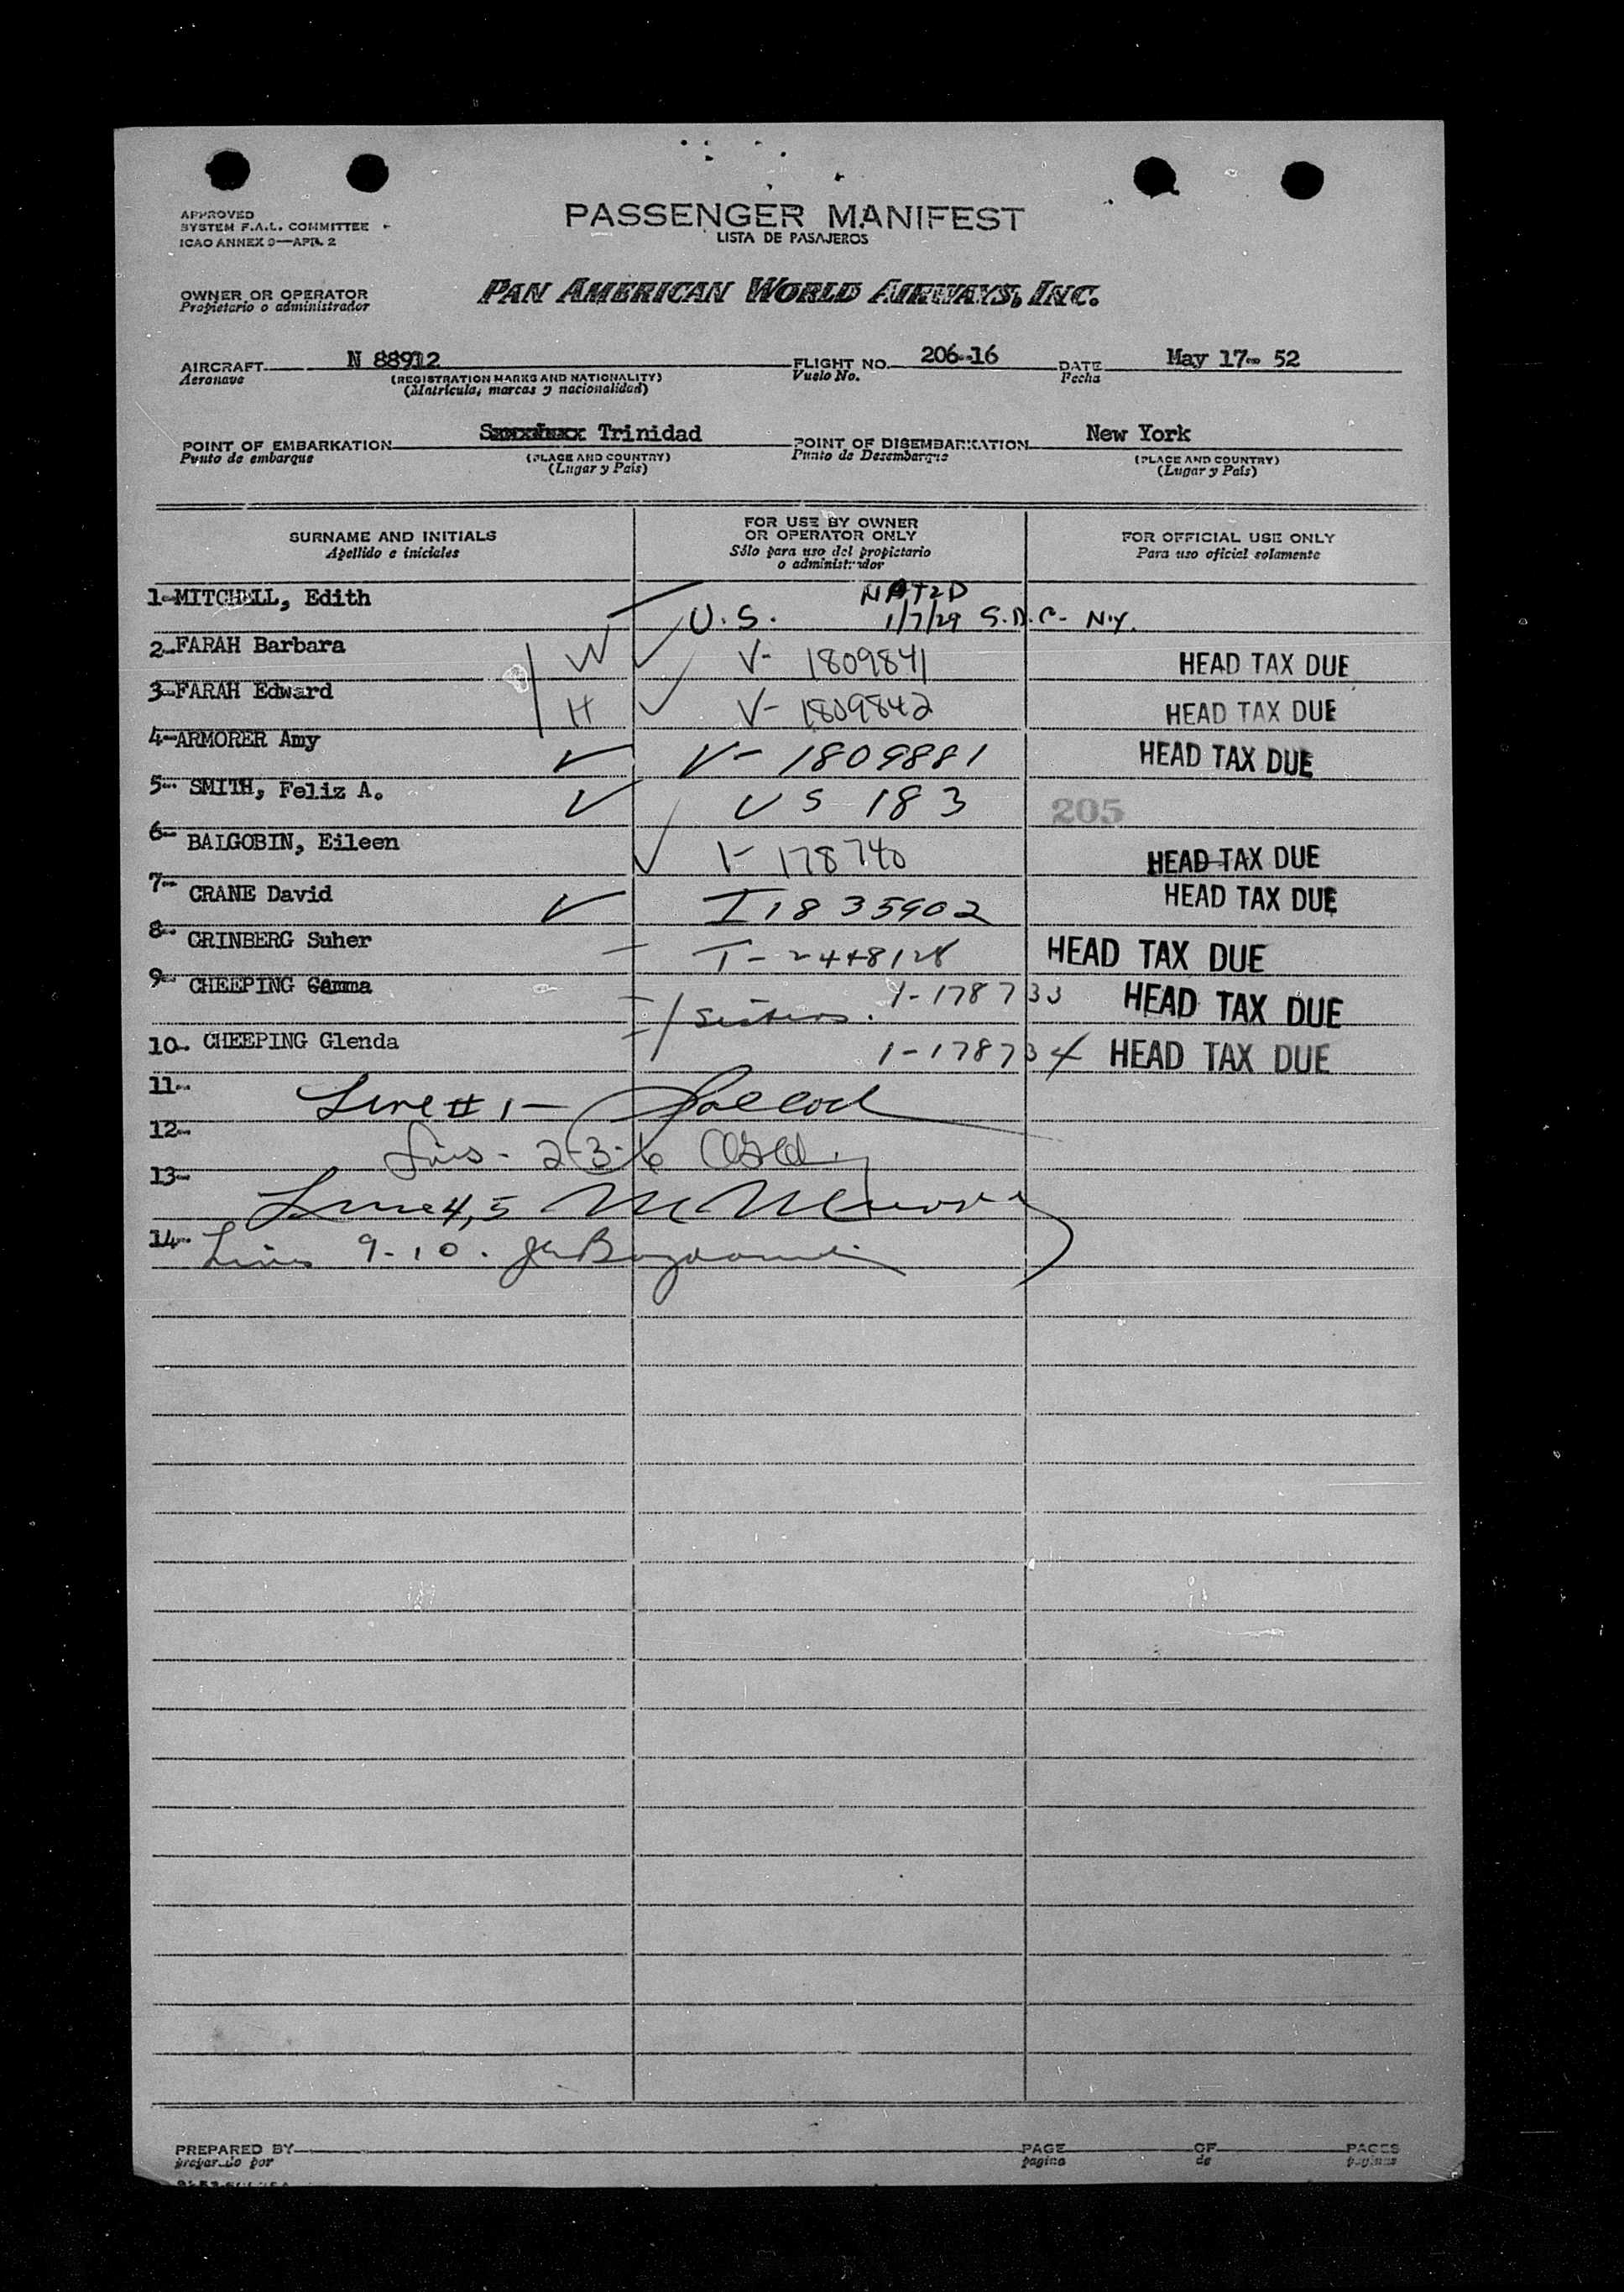 APPROVED
SYSTEM F.A.L. COMMITTEE
ICAO ANNEX 9—APR. 2
PASSENGER MANIFEST
LISTA DE PASAJEROS
OWNER OR OPERATOR
Propietario o administrador
PAN AMERICAN WORLD AIRWAYS, INC.
AIRCRAFT N 88912 FLIGHT NO. 206-16 DATE May 17- 52
Aeronave (REGISTRATION MARKS AND NATIONALITY) Vuelo No. Fecha
(Matrícula, marcas y nacionalidad)
POINT OF EMBARKATION Trinidad POINT OF DISEMBARKATION New York
Punto de embarque (PLACE AND COUNTRY) Punto de Desembarque (PLACE AND COUNTRY)
(Lugar y País) (Lugar y País)
SURNAME AND INITIALS
Apellido e iniciales
FOR USE BY OWNER
OR OPERATOR ONLY
Sólo para uso del propietario
o administrador
FOR OFFICIAL USE ONLY
Para uso oficial solamente
NATZD
1-MITCHELL, Edith U.S. 1/7/29 S.D.C- N.Y.
2-FARAH Barbara W V- 1809841 HEAD TAX DUE
3-FARAH Edward H V- 1809842 HEAD TAX DUE
4-ARMORER Amy V- 1809881 HEAD TAX DUE
5- SMITH, Feliz A. US 183 205
6- BALGOBIN, Eileen I- 178740 HEAD TAX DUE
7- CRANE David I 1835902 HEAD TAX DUE
8- GRINBERG Suher T- 2448128 HEAD TAX DUE
9- CHEEPING Gamma 1-178733 HEAD TAX DUE
Sisters.
10- CHEEPING Glenda 1-178734 HEAD TAX DUE
11- Line # 1-
12- Lins- 2-3-6
13- Line 4,5
14- Lines 9-10.
PREPARED BY PAGE OF PAGES
preparado por pagina de paginas